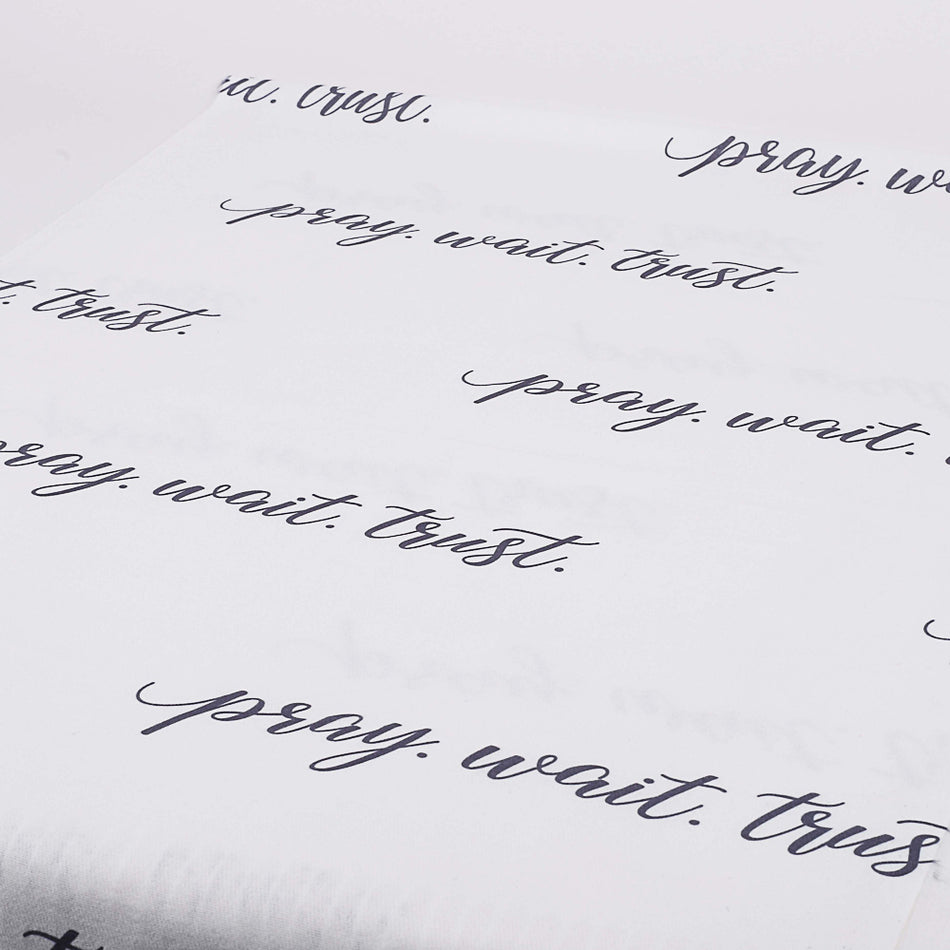 trust.
pray.
pray. wait. trust.
trust.
pray. wait.
pray. wait. trust.
pray. wait.